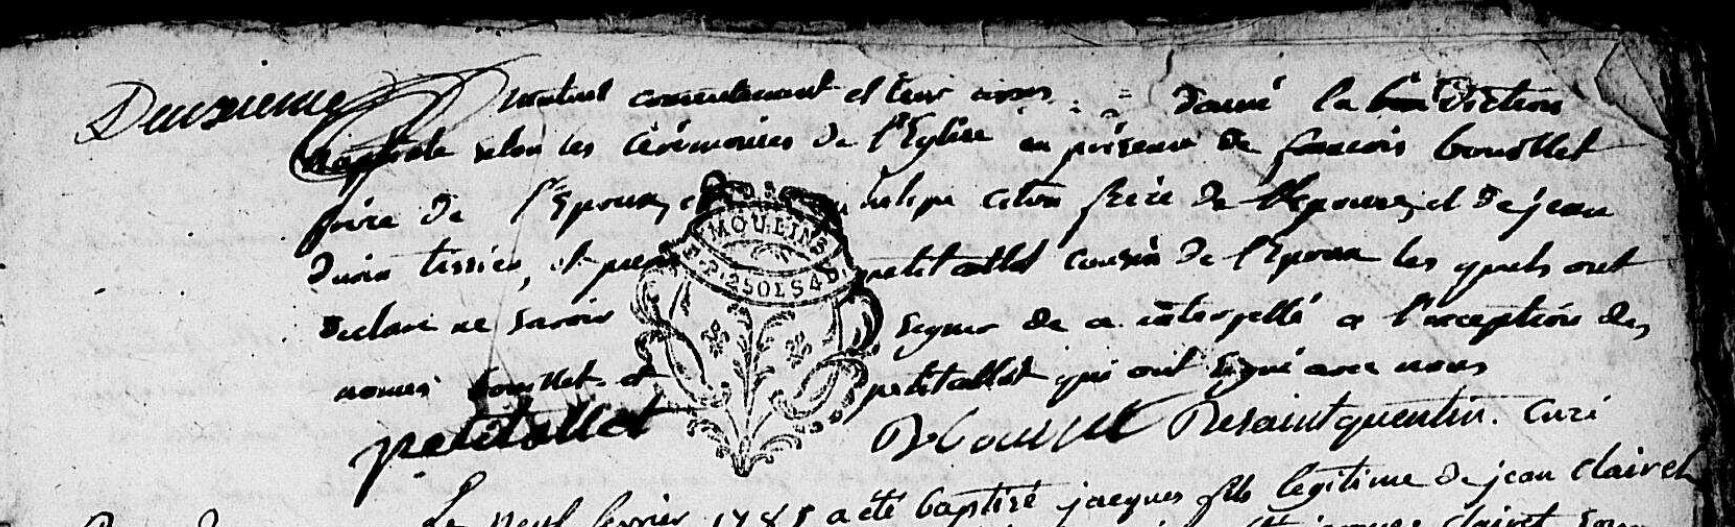 Deuxieme
mutuel consentement et leur avons donné la bénédiction
nuptiale selon les cérémonies de l'Eglise en présence de francois bouillet
frère de l'Epoux, et frère de l'epouse, et de jean
tissier, et petitallet cousin de l'Epoux les quels ont
declaré ne savoir signer de ce interpellé a l'exception des
només bouillet et petitallet qui ont signé avec nous
petitallet Bouillet Desaintquentin. Curé
MOULINS
2 SOLS 4 D.
Le neuf fevrier 1785 a été baptisé jacques fils legitime de jean Clairet